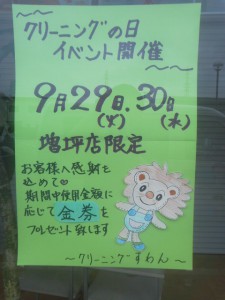 クリーニングの日
イベント開催
9月29日.30日
(火) (水)
増坪店限定
お客様へ感謝を
込めて♡
期間中使用金額に
応じて金券を
プレゼント致します
～クリーニングすわん～